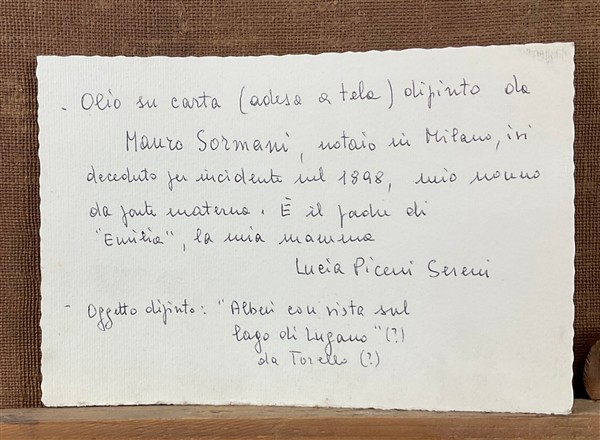 - Olio su carta (adesa a tela) dipinto da
Mauro Sormani, notaio in Milano, ivi
deceduto per incidente nel 1898, mio nonno
da parte materna. È il padre di
"Emilia", la mia mamma
Lucia Piceni Sereni
- Oggetto dipinto: "Alberi con vista sul
lago di Lugano" (?)
da Torello (?)